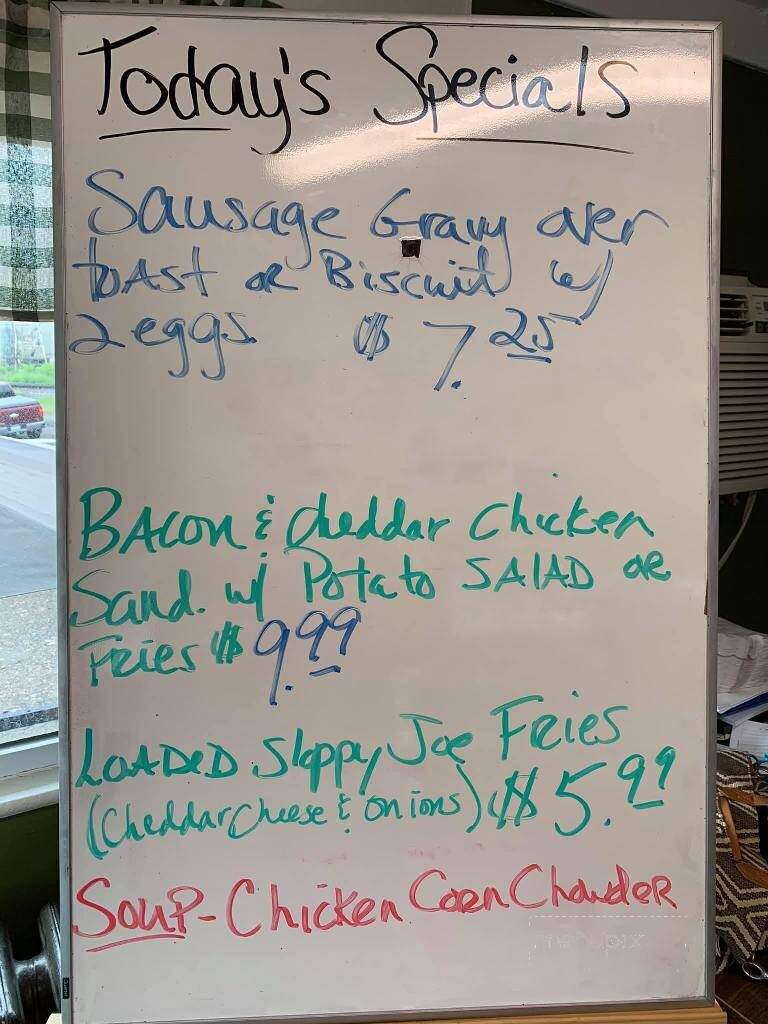 Today's Specials
Sausage Gravy over
toAst or Biscuit w/
2 eggs $7.25
BAcon & Cheddar Chicken
Sand. w/ Potato SALAD or
Fries $9.99
LOADED Sloppy Joe Fries
(Cheddar Cheese & onions) $5.99
Soup-Chicken Corn Chowder
menupix